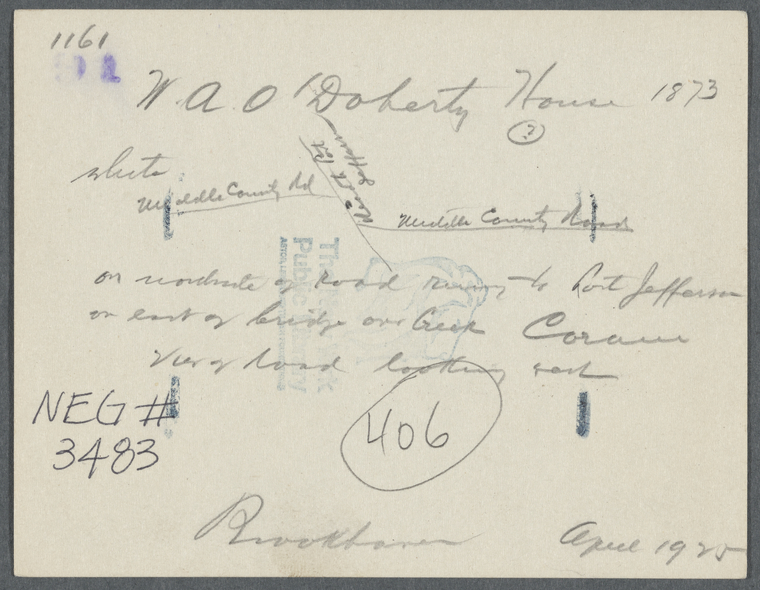 1161
W. A. O'Doherty House 1873
(?)
Middle County Rd
North Pt. Jefferson
Middle County Road
on northside of Road runing to Port Jefferson
on east of bridge over Creek Coram
View of Road looking west
The New York
Public Library
NEG #
3483
406
Brookhaven April 1925